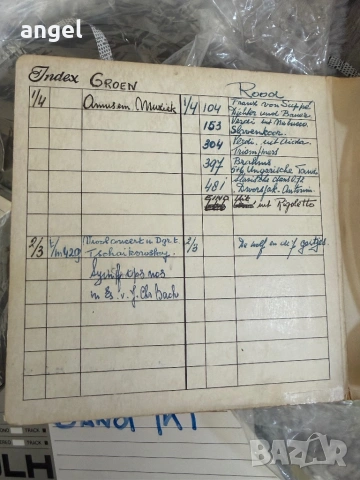 angel
Index GROEN
Rood
1/4 Amusem. Muziek
1/4 104 Frank von Suppé
Dichter und Bauer
153 Verdi uit Nabucco
Slavenkoor.
304 Verdi uit Aida
Triomfmars
397 Brahms
5+6 Ungarische Tanz
481 Slavische dans
Dvorsjak Antonin.
uit Rigoletto
2/3 t/m 429 Vioolconcert in D gr.t.
Tschaikowsky
Synf. op 3 no 5
in Es. v. J. Chr Bach
2/3 De wolf en de 7 geitjes
TRACK
BAZAR.BG